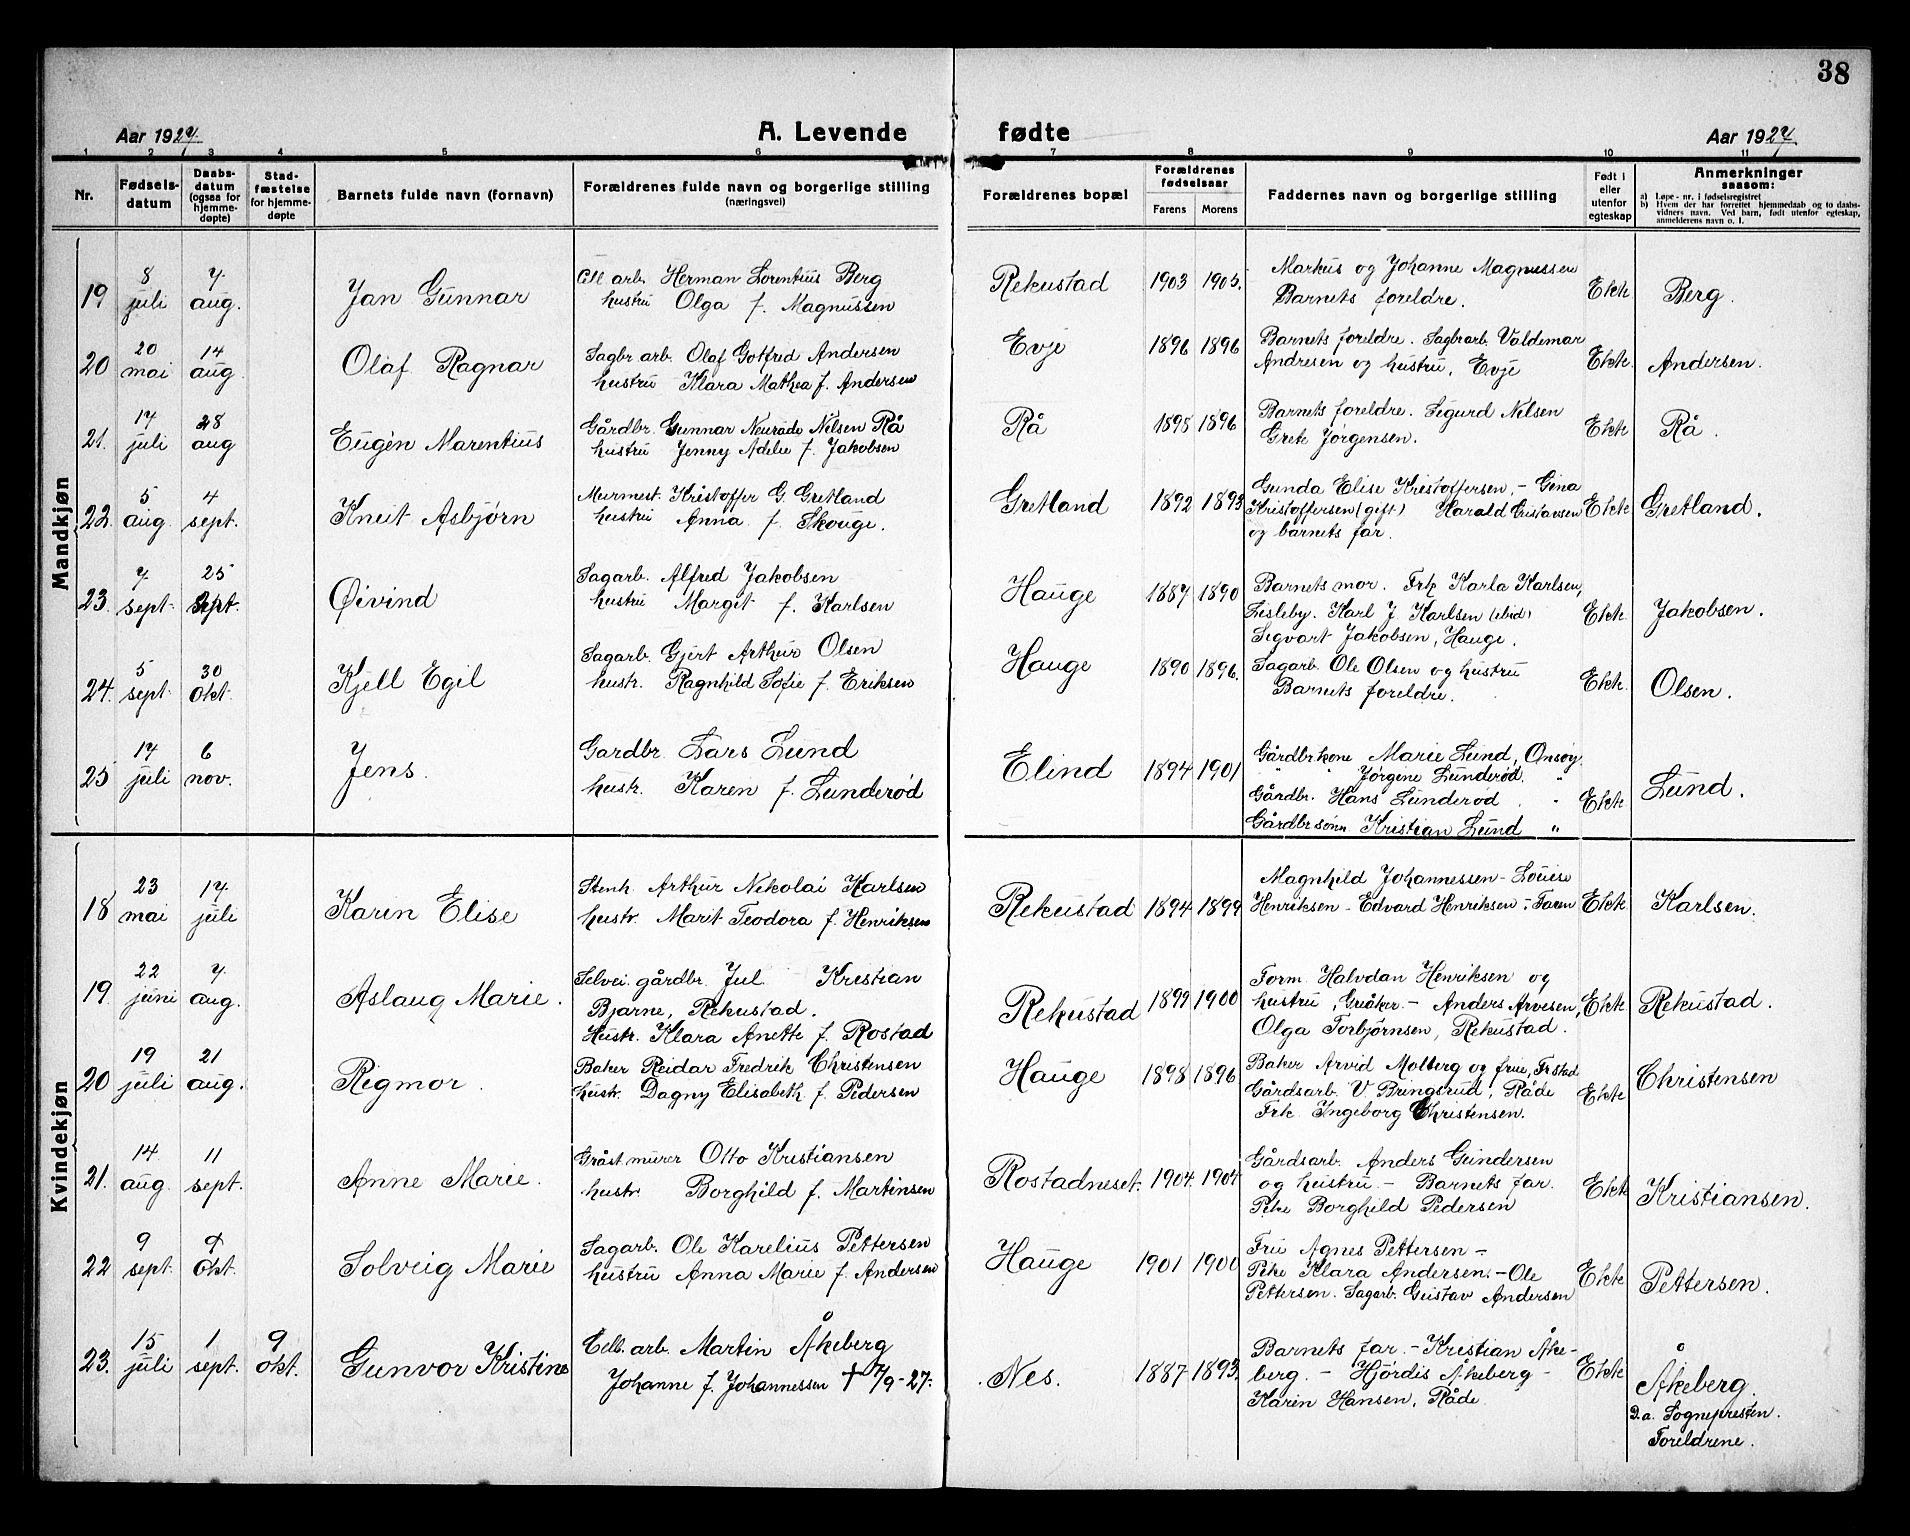 38
Aar 1927. A. Levende fødte Aar 1927
1 2 3 4 5 6 7 8 9 10 11
Nr. Fødsels-datum Daabs-datum (ogsaa for hjemme-døpte) Stad-fæstelse for hjemme-døpte Barnets fulde navn (fornavn) Forældrenes fulde navn og borgerlige stilling (næringsvei) Forældrenes bopæl Forældrenes fødselsaar Farens Morens Faddernes navn og borgerlige stilling Født i eller utenfor egteskap Anmerkninger saasom:
a) Løpe-nr. i fødselsregistret
b) Hvem der har forrettet hjemmedaab og to daabs-vidners navn. Ved barn, født utenfor egteskap, anmelderens navn o. l.
Mandkjøn
19 8 juli 7. aug. Jan Gunnar Cell arb. Herman Lorentius Berg Rekustad 1903 1905. Markus og Johanne Magnussen Ekte Berg.
hustru Olga f. Magnussen Barnets foreldre.
20 20 mai 14 aug. Olaf Ragnar Sagbr arb. Olaf Gotfred Andersen Evje 1896 1896 Barnets foreldre. Sagbarb. Valdemar Ekte Andersen.
hustru Klara Mathea f. Andersen Andresen og hustru, Evje
21. 17 juli 28 aug Eugèn Marentius Gårdbr. Gunnar Neuräde Nilsen Rå Rå 1898 1896 Barnets foreldre. Sigurd Nilsen Ekte Rå.
hustru Jenny Adelie f. Jakobsen Grete Jørgensen.
22. 5 aug. 4 sept. Knut Asbjørn Murmest. Kristoffer G. Gretland Gretland 1892 1893 Gunda Elise Kristoffersen, - Gina Ekte Gretland.
hustru Anna f. Skouge. Kristoffersen (gift) Harald Gustavsen
og barnets far.
23. 7 sept. 25 sept. Øivind Sagarb. Alfred Jakobsen Hauge 1887 1890 Barnets mor. Frk Karla Karlsen, Ekte Jakobsen.
hustru Margit f. Karlsen Lisleby. Karl J Karlsen (ibid)
Sigvart Jakobsen, Hauge.
24. 5 sept. 30 Okt. Kjell Egil Sagarb. Gjert Arthur Olsen Hauge 1890 1896. Sagarb. Ole Olsen og hustru Ekte Olsen.
hustr. Ragnhild Sofie f. Eriksen Barnets foreldre.
25 17 juli 6 nov. Jens. Gardbr. Lars Lund Elind 1894 1901 Gårdbr.kone Marie Lund, Onsøy Ekte Lund.
hustr. Karen f. Lunderød " " Jørgine Lunderød, "
Gårdbr. Hans Lunderød. "
Gårdbr sønn Kristian Lund "
Kvindekjøn
18 23 mai 17 juli Karin Elise Stenh. Arthur Nikolai Karlsen Rekustad 1894 1899 Magnhild Johannessen - Louise Ekte Karlsen.
hustr. Marit Teodora f. Henriksen Henriksen - Edvard Henriksen -
19. 22 juni 7. aug. Aslaug Marie. Selvei. gårdbr. Jul Kristian Rekustad 1899 1900 Form. Halvdan Henriksen og Ekte Rekustad.
Bjarne, Rekustad. hustru, Guåker. - Anders Arvesen,
Hustr. Klara Anette f. Rostad Olga Torbjørnsen, Rekustad.
20 19 juli 21 aug. Rigmor. Baker Reidar Fredrik Christensen Hauge 1898 1896 Baker Arvid Molberg og frue, Fr.stad Ekte Christensen
hustr. Dagny Elisabeth f. Pedersen Gårdsarb. V Bringsrud, Råde
Frk Ingeborg Christensen.
21. 14 aug. 11 sept. Anne Marie. Gråst.murer Otto Kristiansen Rostadneset. 1904. 1904. Gårdsarb. Anders Gundersen Ekte Kristiansen.
hustr. Borghild f. Martinsen og hustru. - Barnets far.
Pike Borghild Pedersen
22 9 sept. 9 Okt. Solveig Marie Sagarb. Ole Karelius Pettersen Hauge 1901 1900 Fru Agnes Pettersen - Ekte Pettersen.
hustru Anna Marie f. Andersen Pike Klara Andersen. - Ole
Pettersen. Sagarb. Gustav Andersen
23. 15 juli 1 sept. 9 okt. Gunvor Kristine Cell. arb. Martin Åkeberg Nes. 1887 1893. Barnets far. - Kristian Åke- Ekte Åkeberg.
Johanne f. Johannessen † 4/9-27. berg. - Hjördis Åkeberg -
Karin Hansen, Råde
D.a. Sognepresten.
Foreldrene.